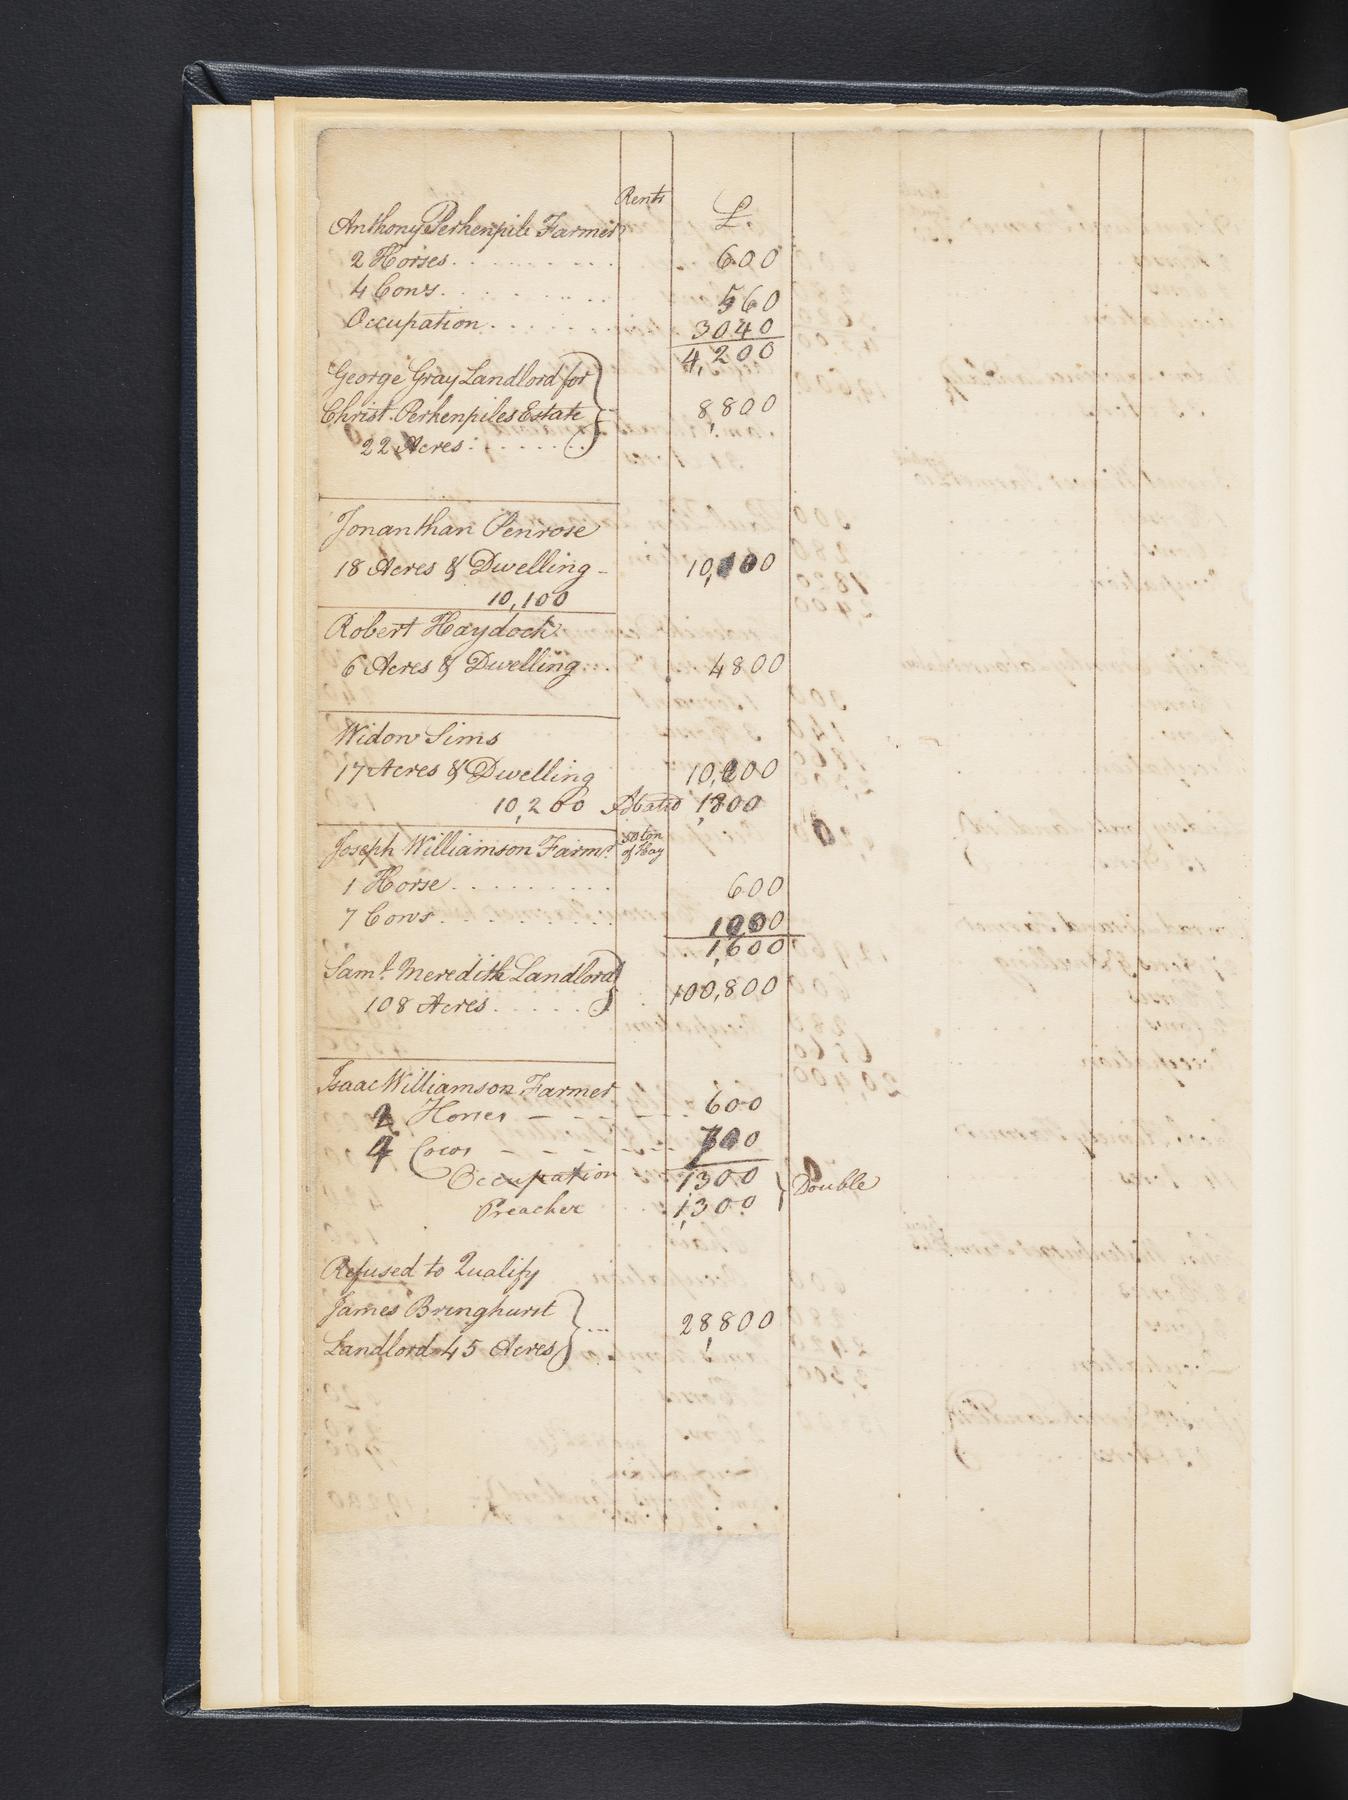 Rents £.
Anthony Perkenpile Farmer
2 Horses . . . . . . . . . 600
4 Cows . . . . . . . . . 560
Occupation . . . . . . . 3040
4,200
George Gray Landlord for
Christ. Perkenpiles Estate 8,800
22 Acres : . . . . . .
Jonanthan Penrose
18 Acres & Dwelling - 10,100
10,100
Robert Haydock
6 Acres & Dwelling . . . 4800
Widow Sims
17 Acres & Dwelling 10,200
10,200 Abated 1,800
Joseph Williamson Farmr. 30 ton of Hay
1 Horse . . . . . . . . . 600
7 Cows . . . . . . . . . 1000
1,600
Saml. Meredith Landlord
108 Acres . . . . . . 100,800
Isaac Williamson Farmer
2 Horses - - - - 600
4 Cows - - - - 700
Occupation 1300 Double
Preacher 1,300
Refused to Qualify
James Bringhurst
Landlord 45 Acres ... 28,800